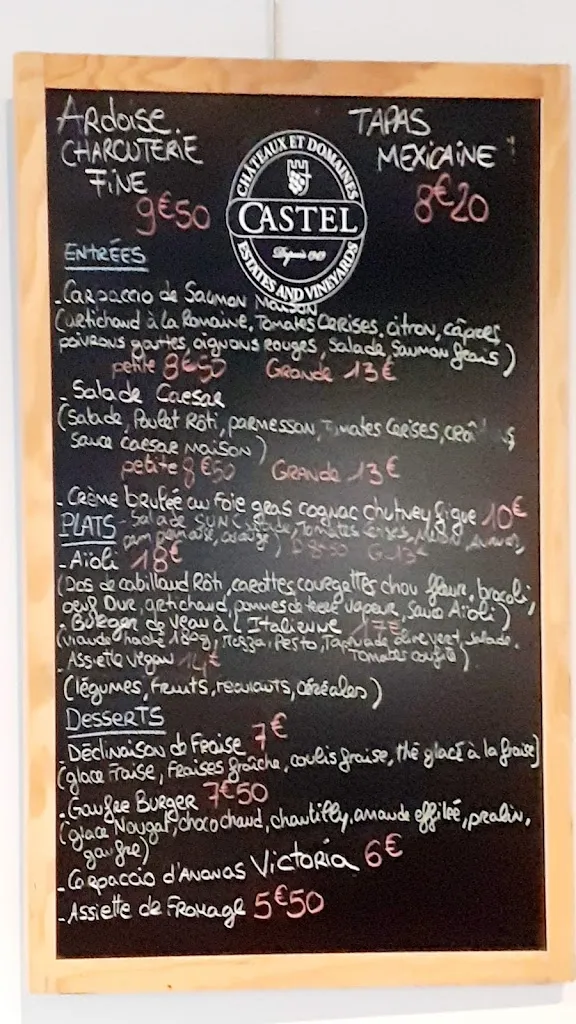 ARdoise.
CHARCUTERIE
FINE
9€50
TAPAS
MEXICAINE
8€20
CHATEAUX ET DOMAINES
CASTEL
Depuis
ESTATES AND VINEYARDS
ENTRÉES
- Carpaccio de Saumon Maison
(artichaud à la Romaine, Tomates Cerises, citron, câpres,
poivrons gouttes, oignons rouges, Salade, Saumon frais)
petite 8€50 GRANDE 13€
- Salade Caesar
(Salade, Poulet Rôti, parmessan, Tomates Cerises, croûtons,
Sauce Caesar Maison)
petite 8€50 GRANDE 13€
- Crème brulée au Foie gras cognac chutney figue 10€
- Salade SUN (Salade, Tomates Cerises, Melon,
PLATS
- Aïoli 18€
(Dos de cabillaud Rôti, carottes, courgettes, chou fleur, brocoli,
oeuf Dur, artichaud, pommes de terre vapeur, Sauce Aïoli)
- Burger de Veau à l'Italienne 17€
(viande haché 180g, Pesto, Tapenade olive vert, Salade,
Tomates confite)
- Assiette Vegan 14€
(légumes, fruits, céréales)
DESSERTS
- Déclinaison de Fraise 7€
(glace Fraise, Fraises fraîche, coulis fraise, thé glacé à la fraise)
- Gaufre Burger 7€50
(glace Nougat, choco chaud, chantilly, amande effilée, pralin,
gaufre)
- Carpaccio d'Ananas Victoria 6€
- Assiette de Fromage 5€50